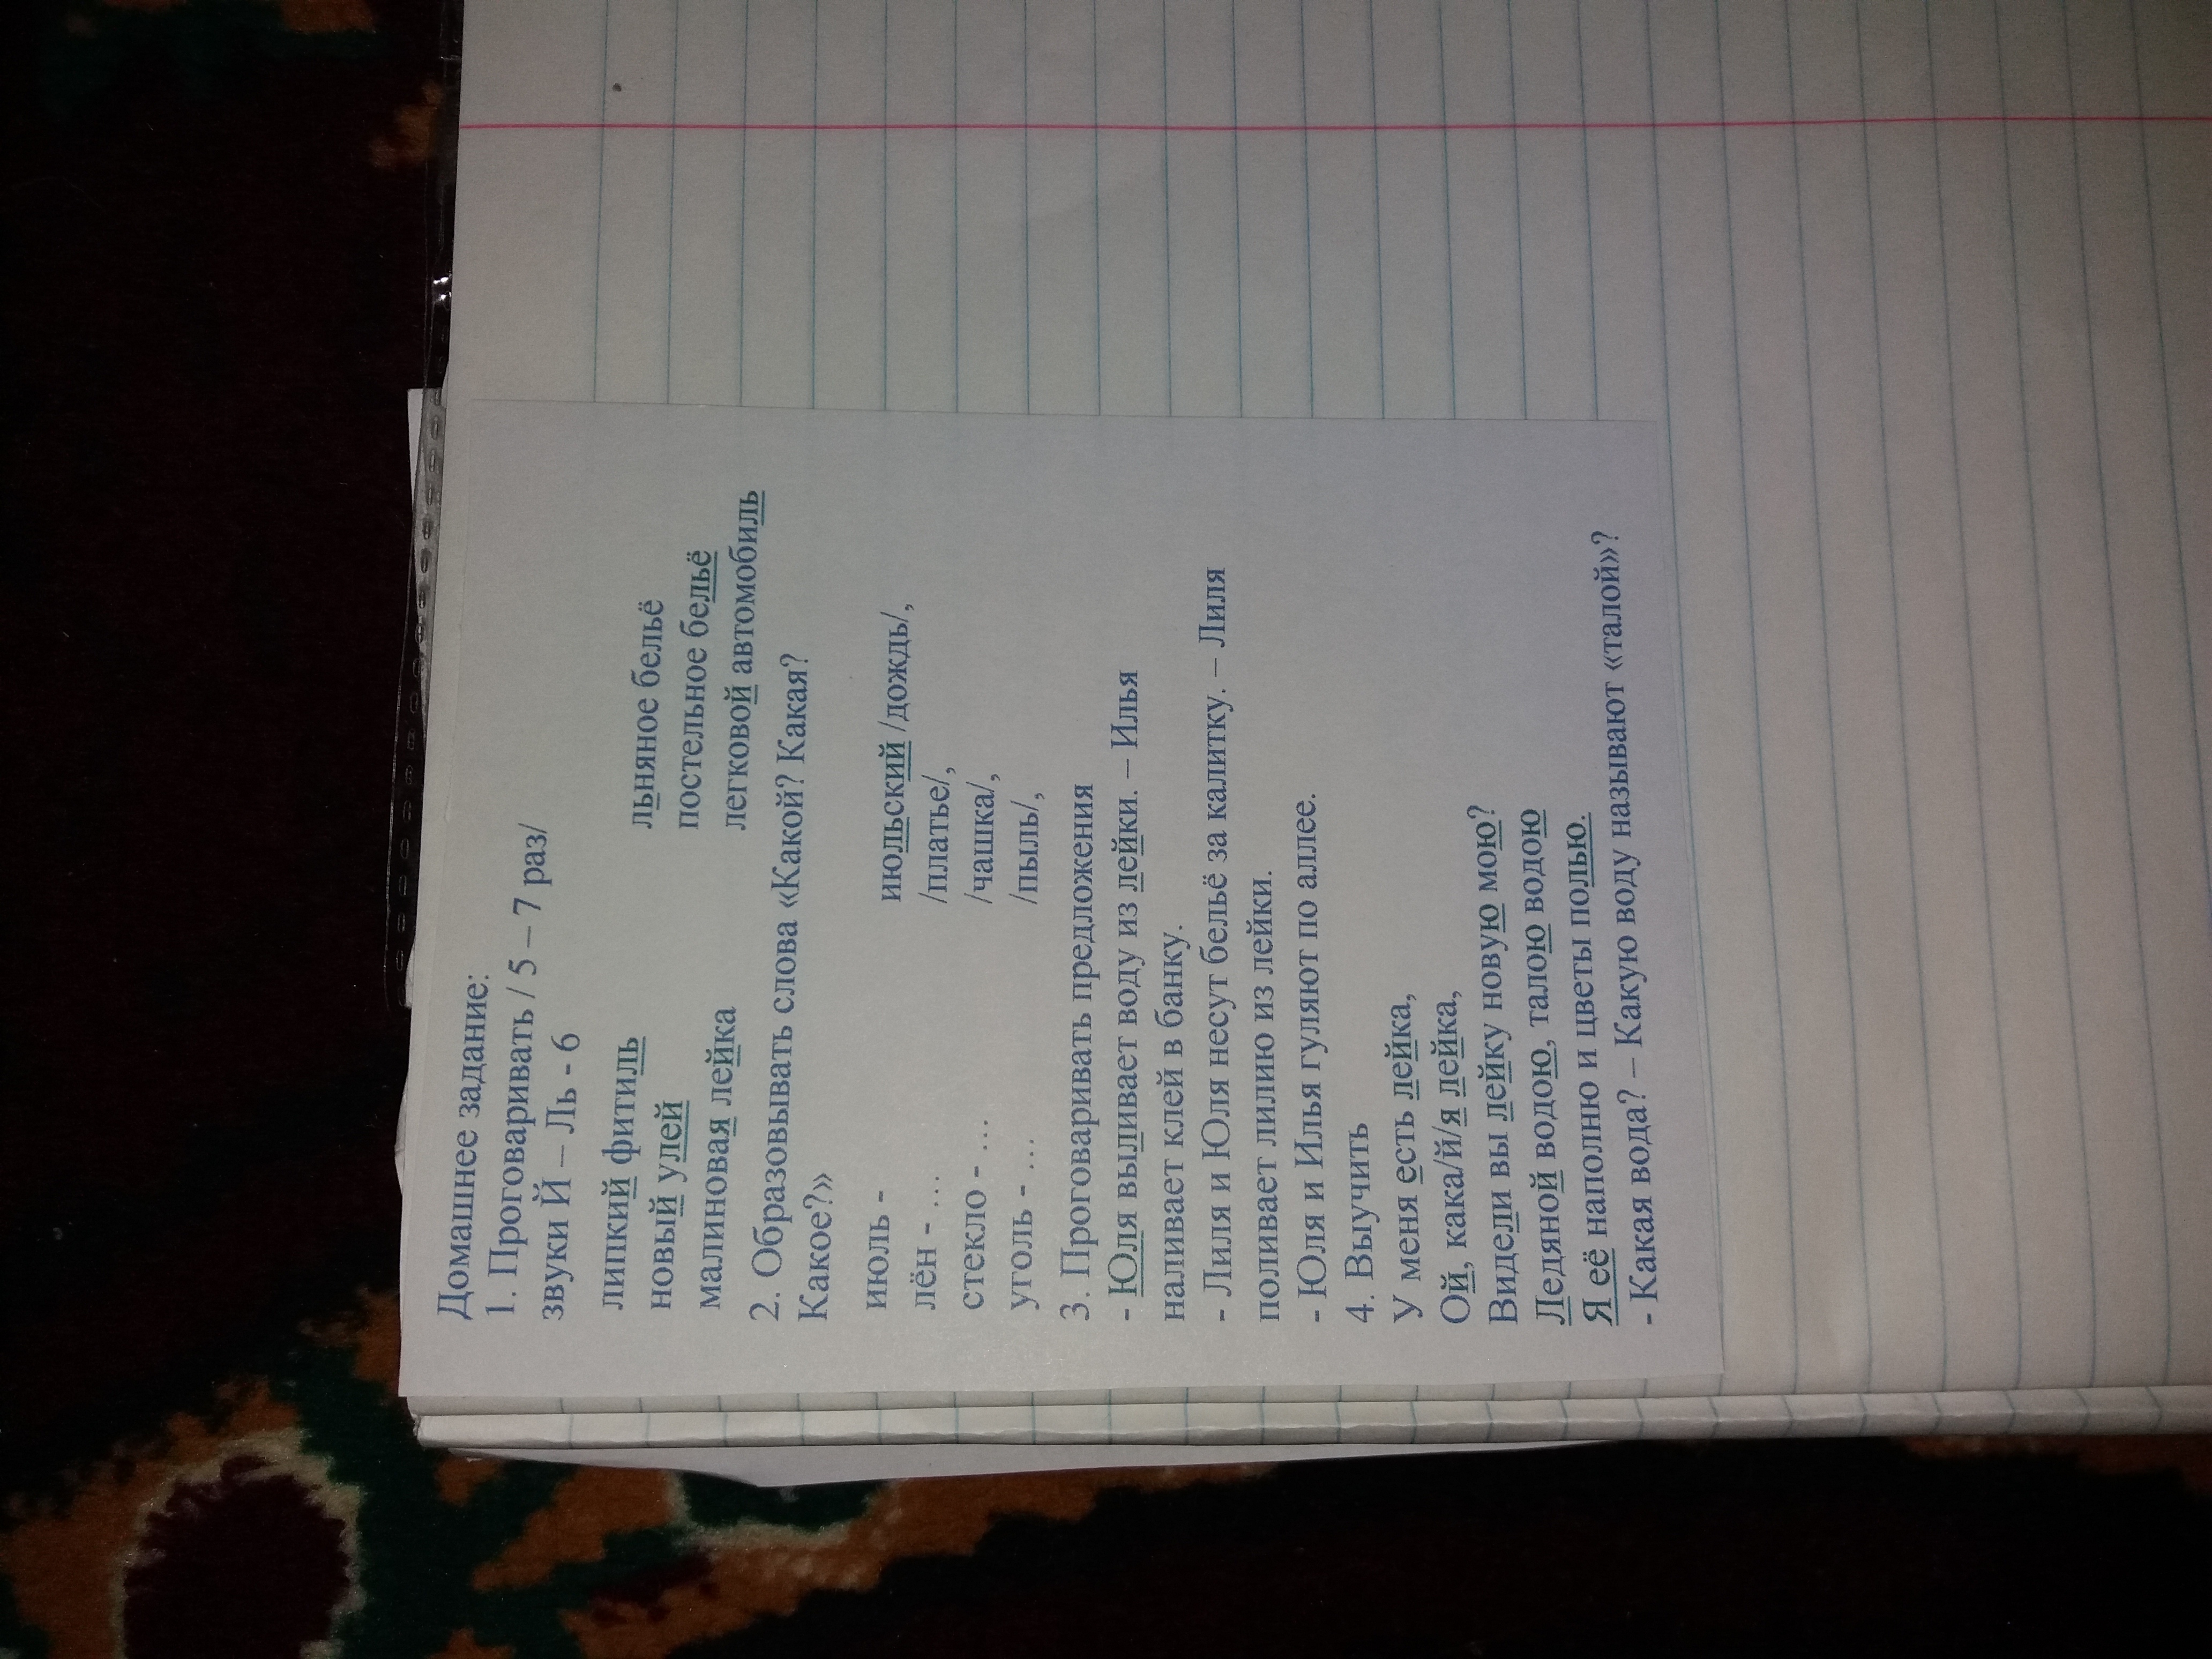 Домашнее задание:
1. Проговаривать / 5 – 7 раз/
звуки Й – Ль - 6
липкий фитиль льняное бельё
новый улей постельное бельё
малиновая лейка легковой автомобиль
2. Образовывать слова «Какой? Какая?
Какое?»
июль - июльский /дождь/,
лён - … /платье/,
стекло - … /чашка/,
уголь - … /пыль/,
3. Проговаривать предложения
- Юля выливает воду из лейки. – Илья
наливает клей в банку.
- Лиля и Юля несут бельё за калитку. – Лиля
поливает лилию из лейки.
- Юля и Илья гуляют по аллее.
4. Выучить
У меня есть лейка,
Ой, кака/й/я лейка,
Видели вы лейку новую мою?
Ледяной водою, талою водою
Я её наполню и цветы полью.
- Какая вода? – Какую воду называют «талой»?